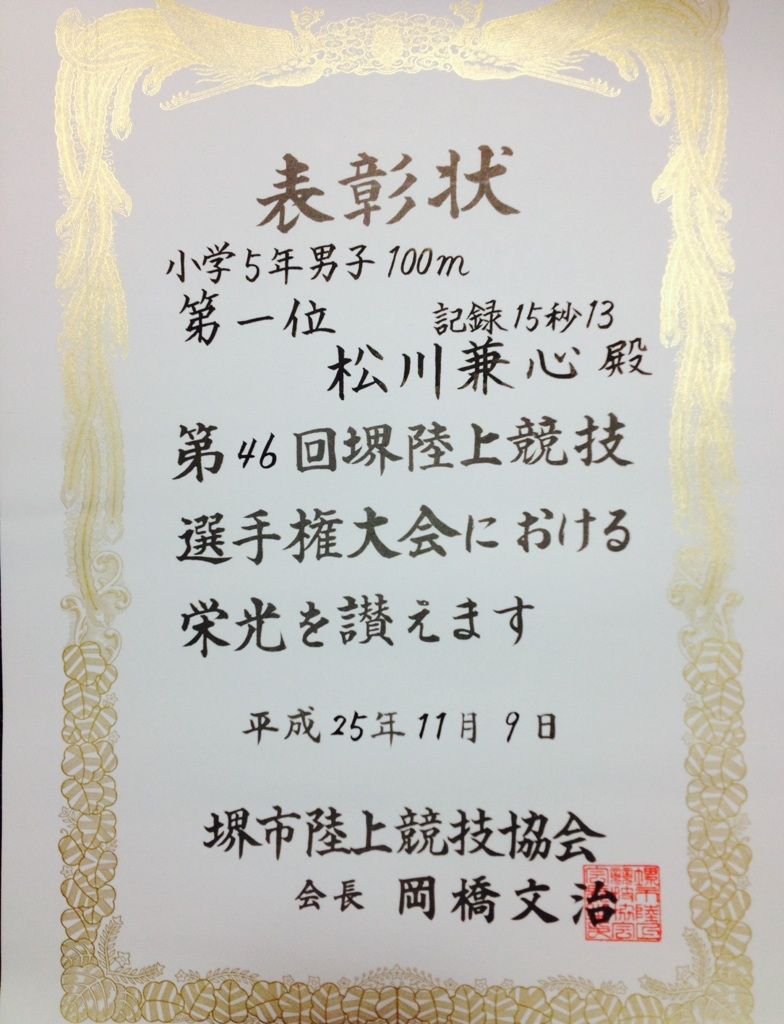 表彰状
小学5年男子100m
第一位 記録15秒13
松川兼心殿
第46回堺陸上競技
選手権大会における
栄光を讃えます
平成25年11月9日
堺市陸上競技協会
会長 岡橋文治